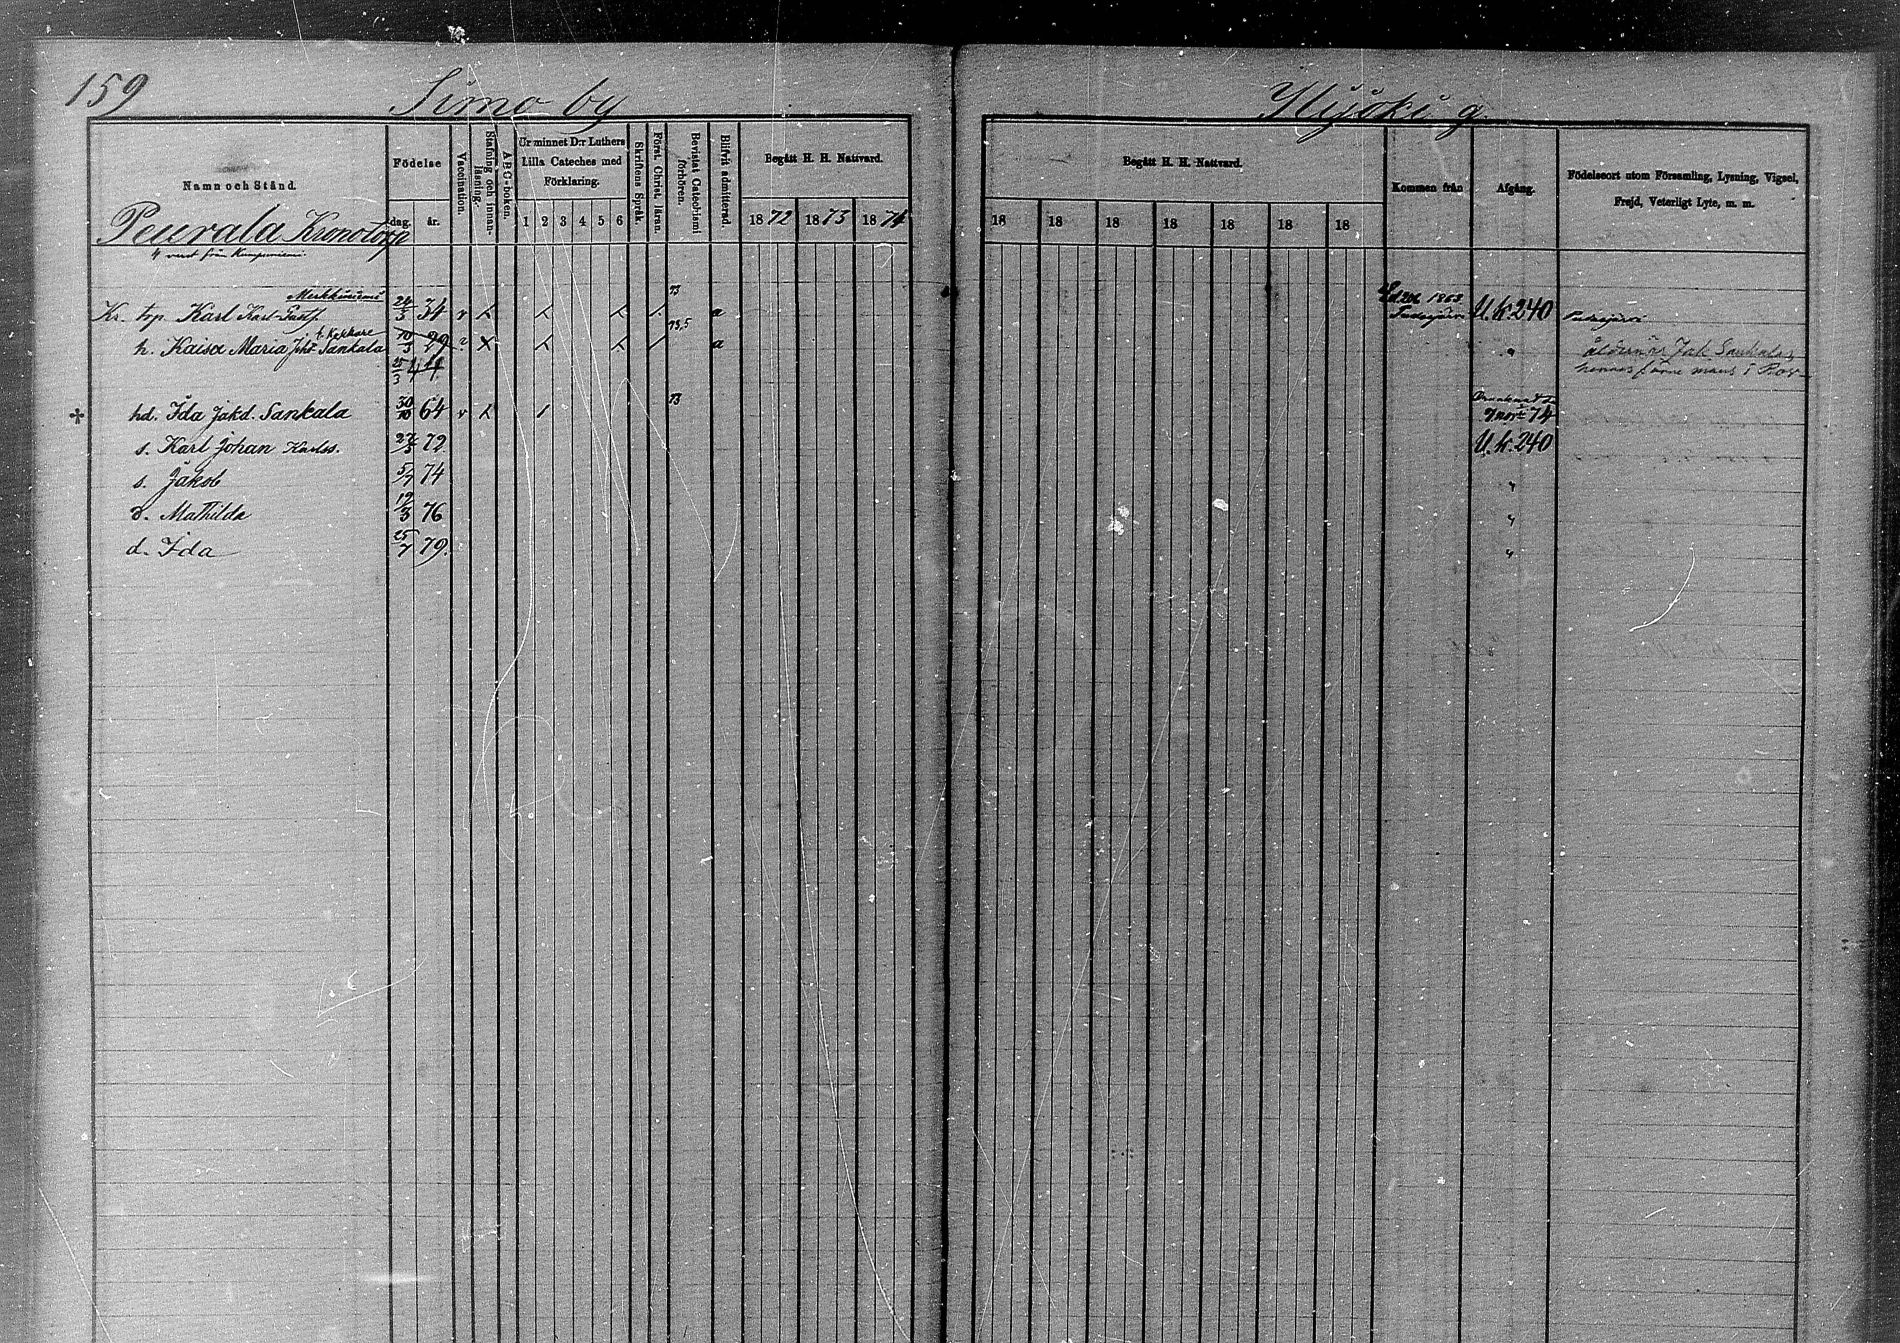 159
Simo by
Namn och Stånd.
Födelse
dag. år.
Vaccination.
Stafning och innan-
läsning.
ABC-boken.
Ur minnet D:r Luthers
Lilla Cateches med
Förklaring.
1 2 3 4 5 6
Skriftens Språk.
Först. Christ. läran.
Bevistat Catechismi
förhören.
Blifvit admitterad.
Begått H. H. Nattvard.
1872 1873 1874
Peurala Kronotorp
4 verst från
Kr. trp. Karl 24/3 34 v a
73
h. Kaisa Maria Joh:dr Sankala 29 ? a
73,5
25/3 44
hd. Ida Jakd. Sankala 30/10 64 v 1
73
s. Karl Johan Karlss. 27/3 72
s. Jakob 5/7 74
d. Mathilda 12/3 76
d. Ida 25/7 79.
g.
Begått H. H. Nattvard.
18 18 18 18 18 18 18
Kommen från
Afgång.
Födelseort utom Församling, Lysning, Vigsel,
Frejd, Veterligt Lyte, m. m.
1863
Pudasjärvi U. k. 240 Pudasjärvi
" Jak Sankala
74
U. k. 240
"
"
"